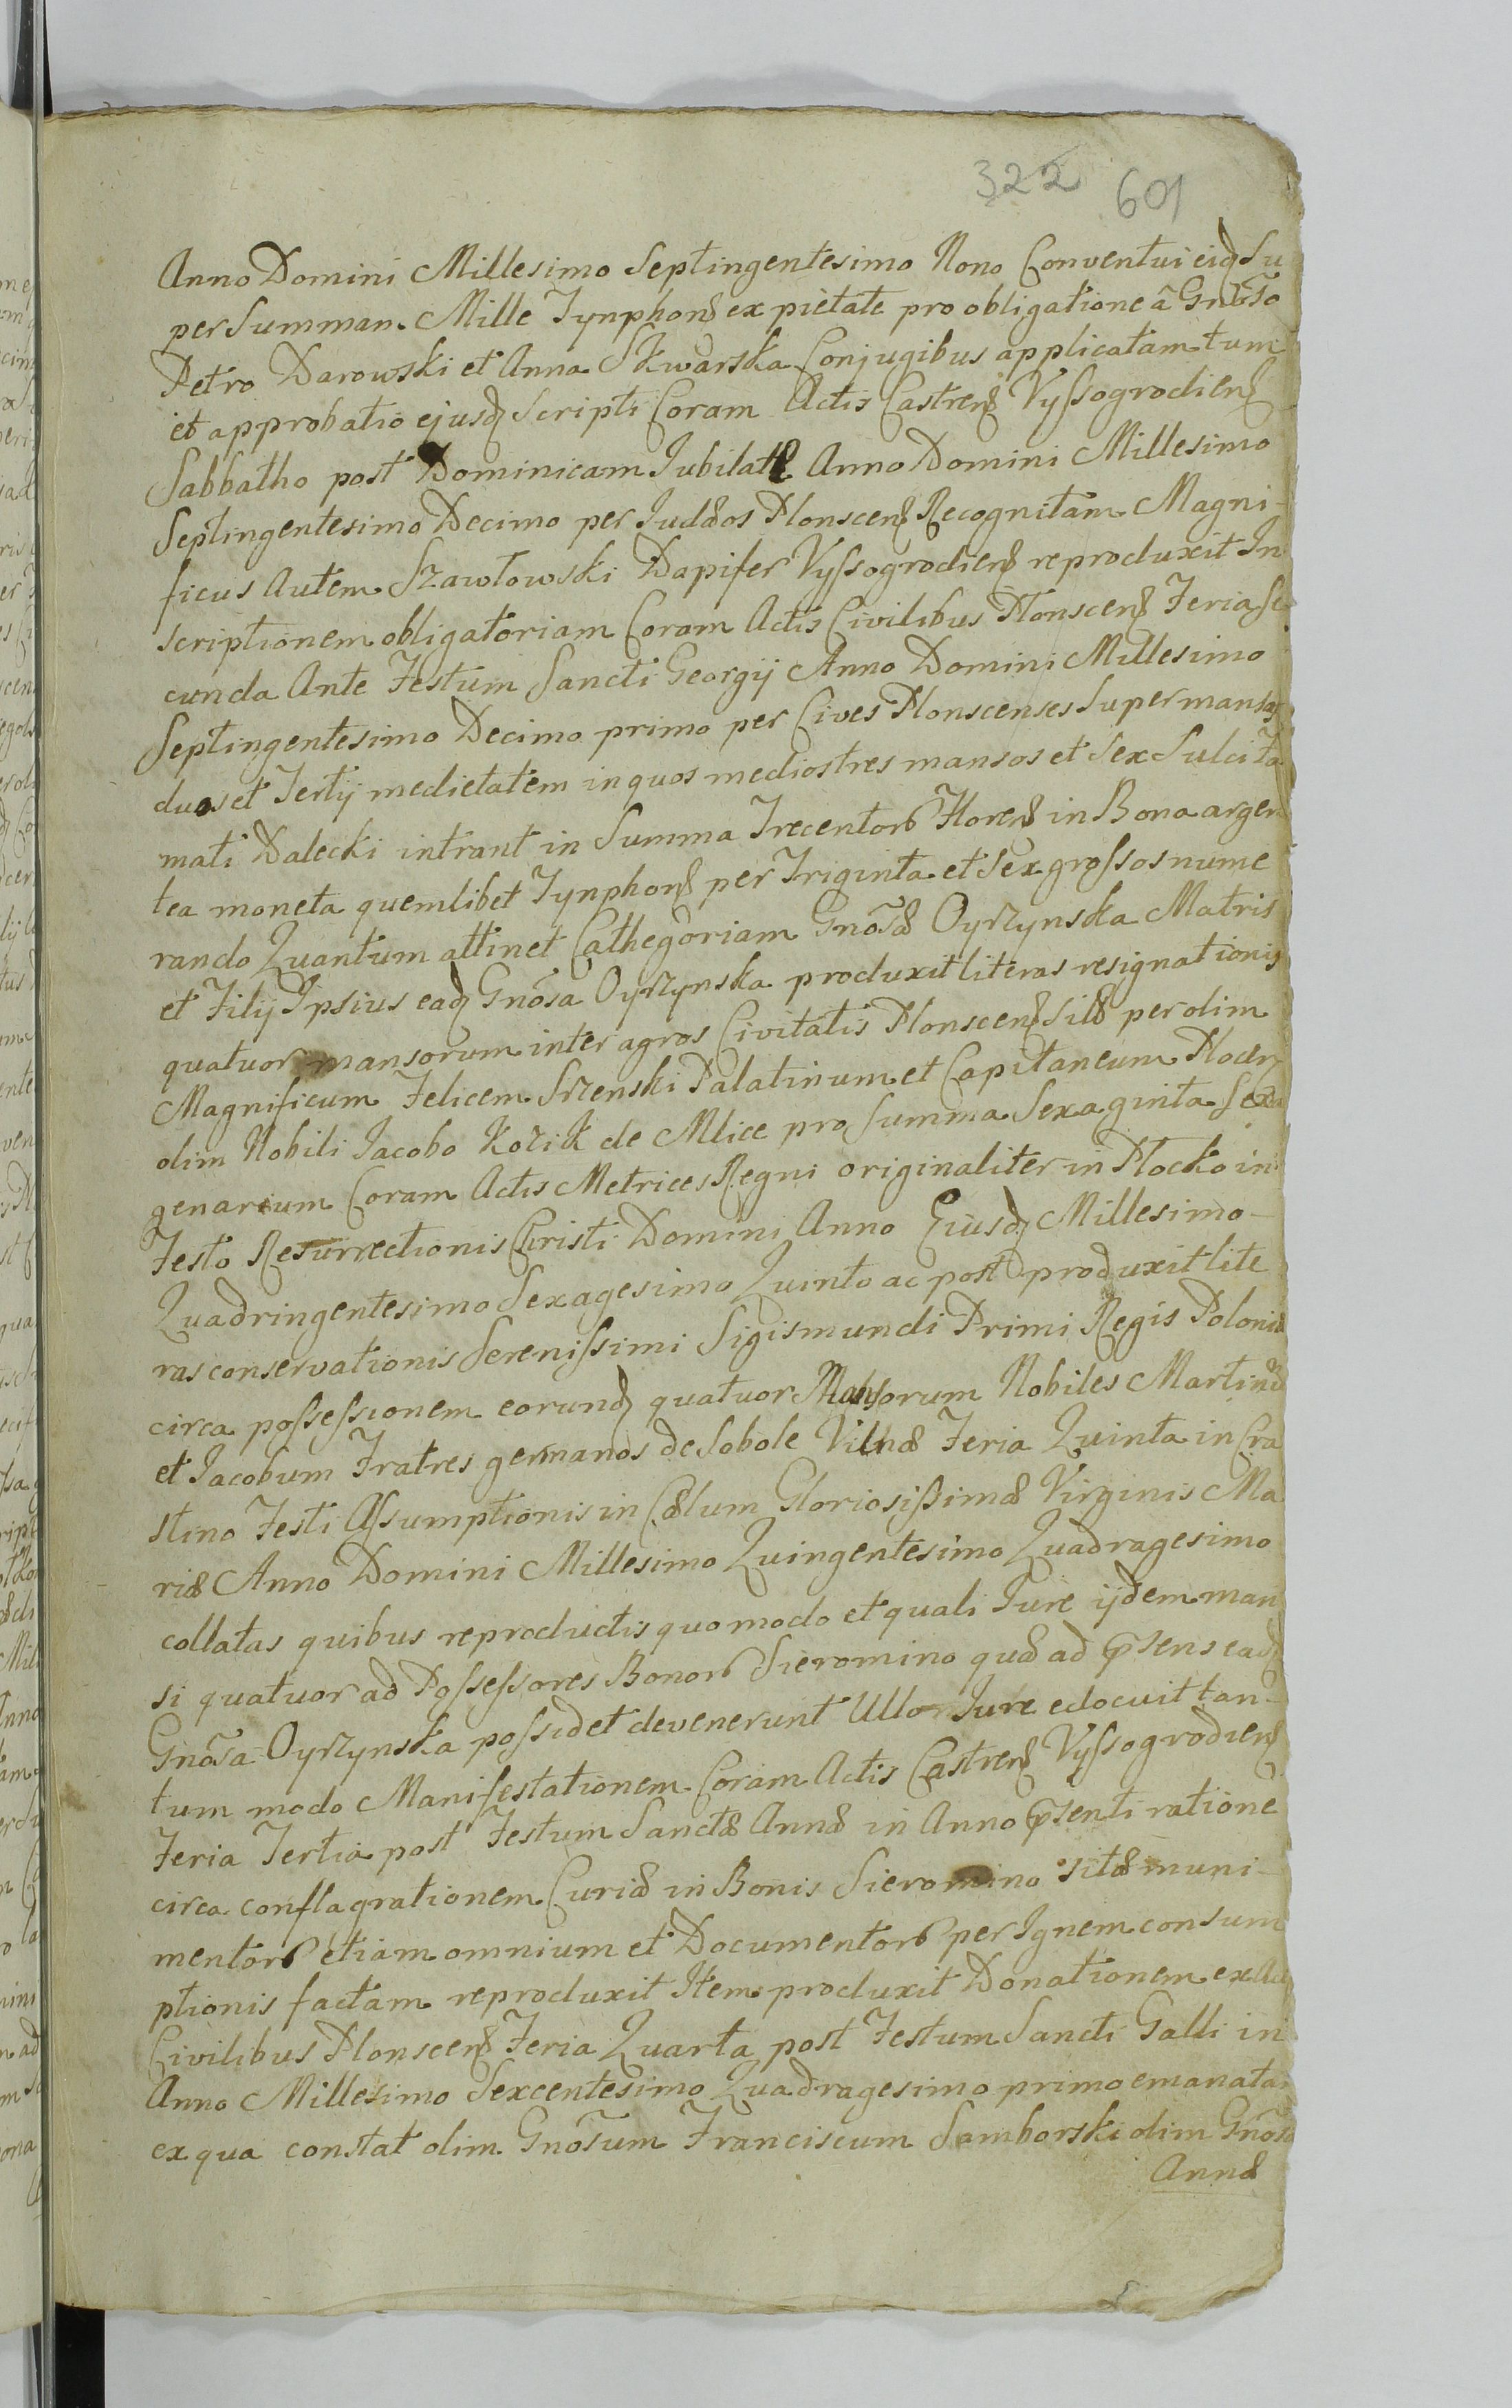 322 601
Anno Domini Millesimo Septingentesimo Nono Conventui eidq Su
per Summam Mille Tynphonẽ ex pietate pro obligatione â Gnoso
Petro Darowski et Anna Skwarska Conjugibus applicatam tum
et approbatio ejusdq Scripti Coram Actis Castren̄ Vyssogrodien̄
Sabbatho post Dominicam Jubilate Anno Domini Millesimo
Septingentesimo Decimo per Judæos Plonscen̄ Recognitam Magni-
ficus Autem Szawłowski Dapifer Vyssogrodien̄ reproduxit In
scriptionem obligatoriam Coram Actis Civilibus Plonscen̄ Feria Se
cunda Ante Festum Sancti Georgij Anno Domini Millesimo
Septingentesimo Decimo primo per Cives Plonscenses Super mansos
duos et Tertij medietatem in quos mediostres mansos et Sex Sulci Fa
mati Dalecki intrant in Summa Trecentorũ Floren̄ in Bona argen
tea moneta quemlibet Tynphon̄ per Triginta et Sex grossos nume
rando Quantum attinet Cathegoriam Gnosæ Oyrzynska Matris
et Filij Ipsius eadq Gnosa Oyrzynska produxit literas resignationis
quatuor mansorum inter agros Civitatis Plonscen̄ Sitæ per olim
Magnificum Felicem Srzenski Palatinum et Capitaneum Plocen̄
olim Nobili Jacobo Kozik de Mlice pro Summa Sexaginta Sexa
genarium Coram Actis Metrices Regni originaliter in Plocko in
Festo Resurrectionis Christi Domini Anno Ejusdq Millesimo-
Quadringentesimo Sexagesimo Quinto ac post produxit lite
ras conservationis Serenissimi Sigismundi Primi Regis Poloniæ
circa possessionem eorundq quatuor Mansorum Nobiles Martinũ
et Jacobum Fratres germanos de Sobole Vilnæ Feria Quinta in Cra
stino Festi Assumptionis in Cælum Gloriosissimæ Virginis Ma
riæ Anno Domini Millesimo Quingentesimo Quadragesimo
collatas quibus reproductis quo modo et quali Jure ijdem man
si quatuor ad Possessores Bonorũ Sieromino quæ ad p̃sens eadq
Gnosa Oyrzynska possidet devenerunt Ullo Jure edocuit tan-
tum modo Manifestationem Coram Actis Castren̄ Vyssogrodien̄
Feria Tertia post Festum Sanctæ Annæ in Anno p̃senti ratione
circa conflagrationem Curiæ in Bonis Sieromino sitæ muni-
mentorũ etiam omnium et Documentorũ per Ignem consum
ptionis factam reproduxit Item produxit Donationem ex Actis
Civilibus Plonscen̄ Feria Quarta post Festum Sancti Galli in
Anno Millesimo Sexcentesimo Quadragesimo primo emanatam
ex qua constat olim Gnosum Franciscum Samborski olim Gnosæ
Annæ